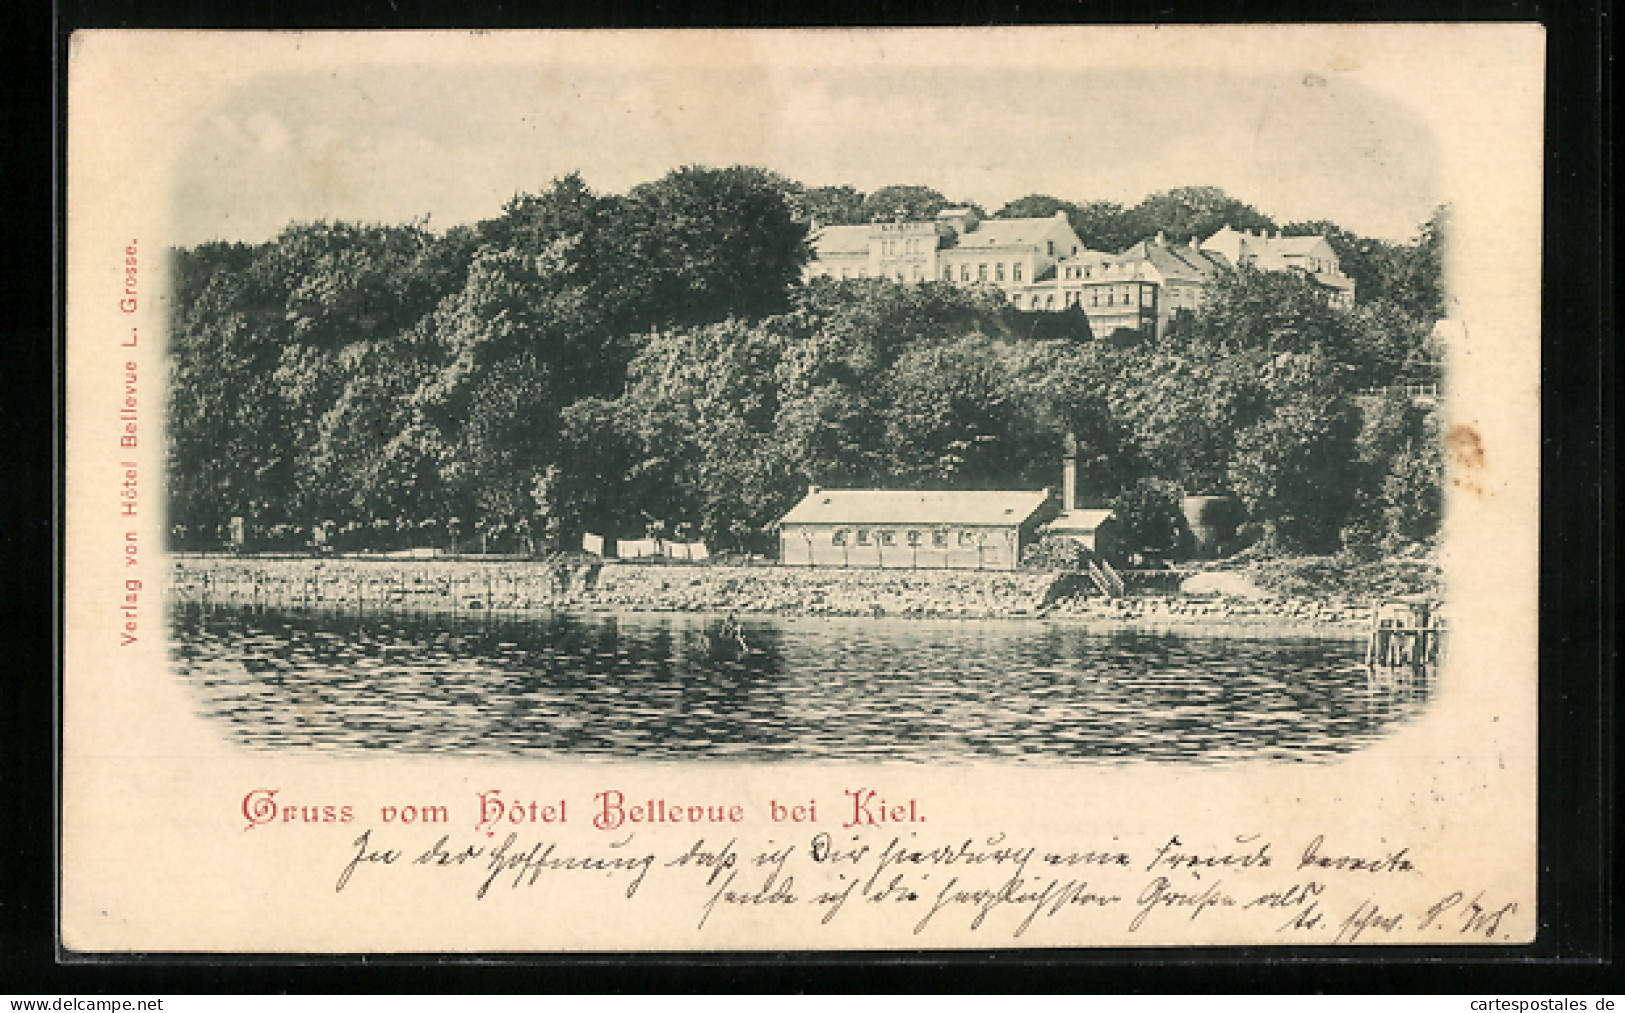 Verlag von Hôtel Bellevue L. Grosse.
Gruss vom Hôtel Bellevue bei Kiel.
In der Hoffnung daß ich Dir hierdurch eine Freude bereite
sende ich die herzlichsten Grüße als
tr. schw.
cartespostales de